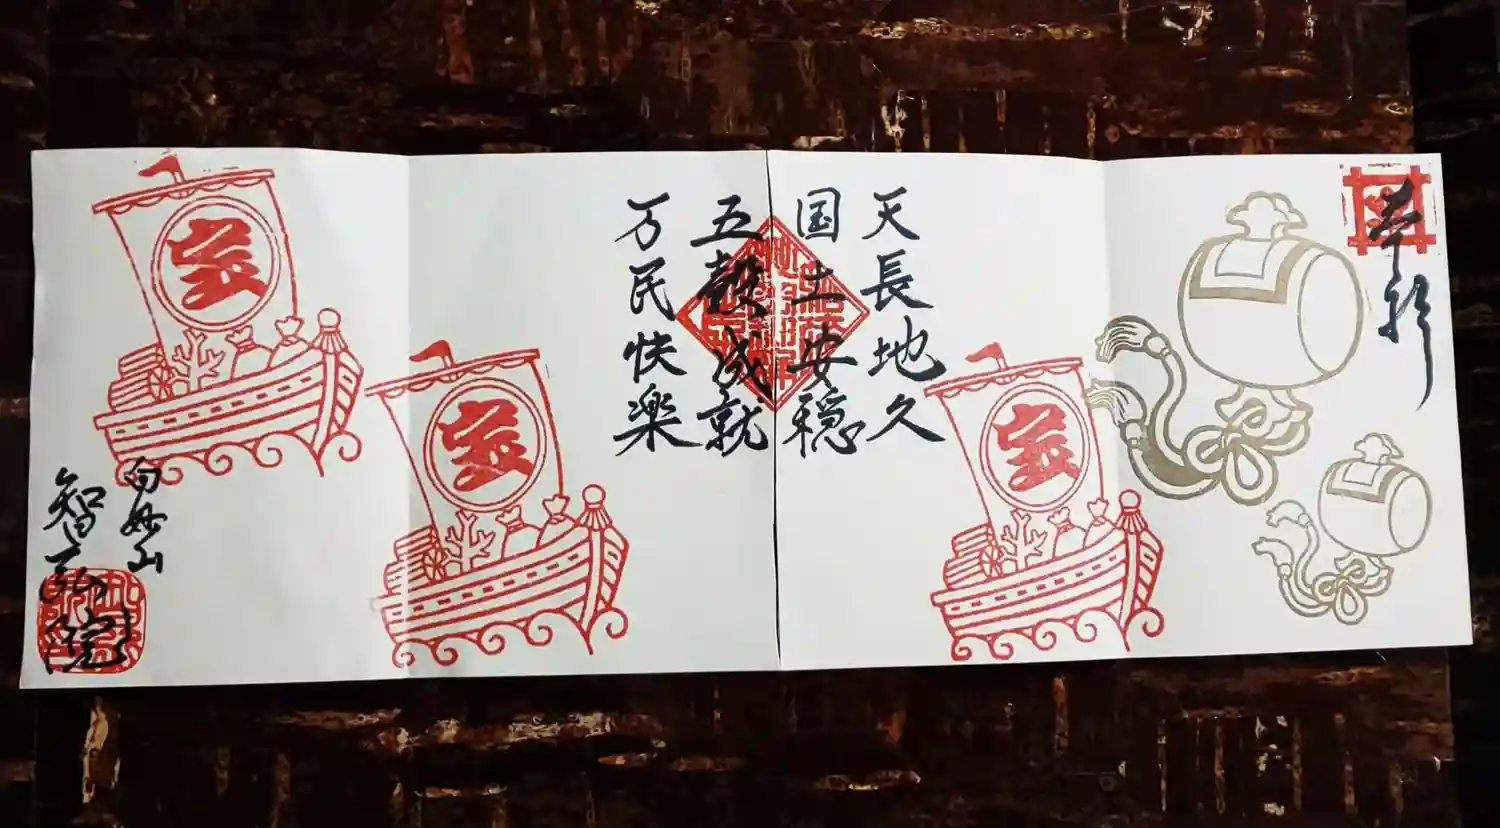 奉拝
天長地久
国土安穏
五穀成就
万民快楽
宝
宝
宝
白妙山
智弘院